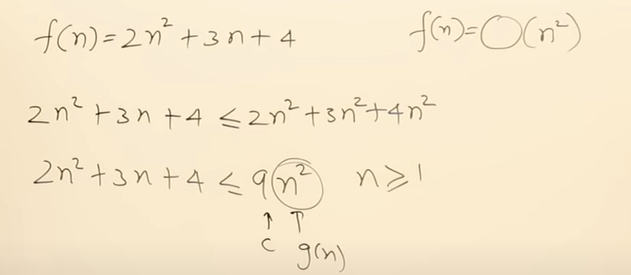 f(n)=2n²+3n+4    f(n)=O(n²)
2n²+3n+4 ≤ 2n²+3n²+4n²
2n²+3n+4 ≤ 9n²  n≥1
↑ ↑
c g(n)